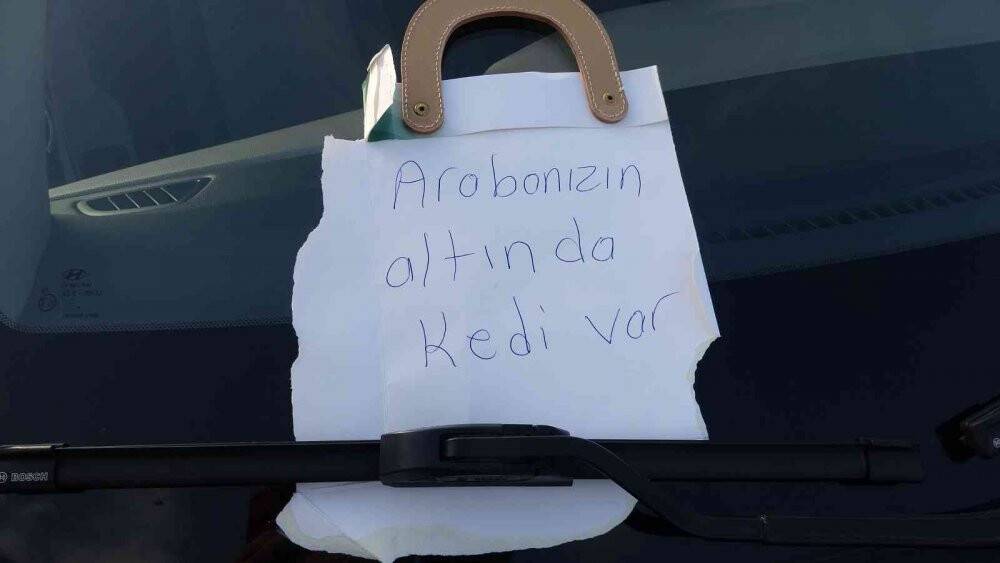 Arabanızın
altında
Kedi var
BOSCH